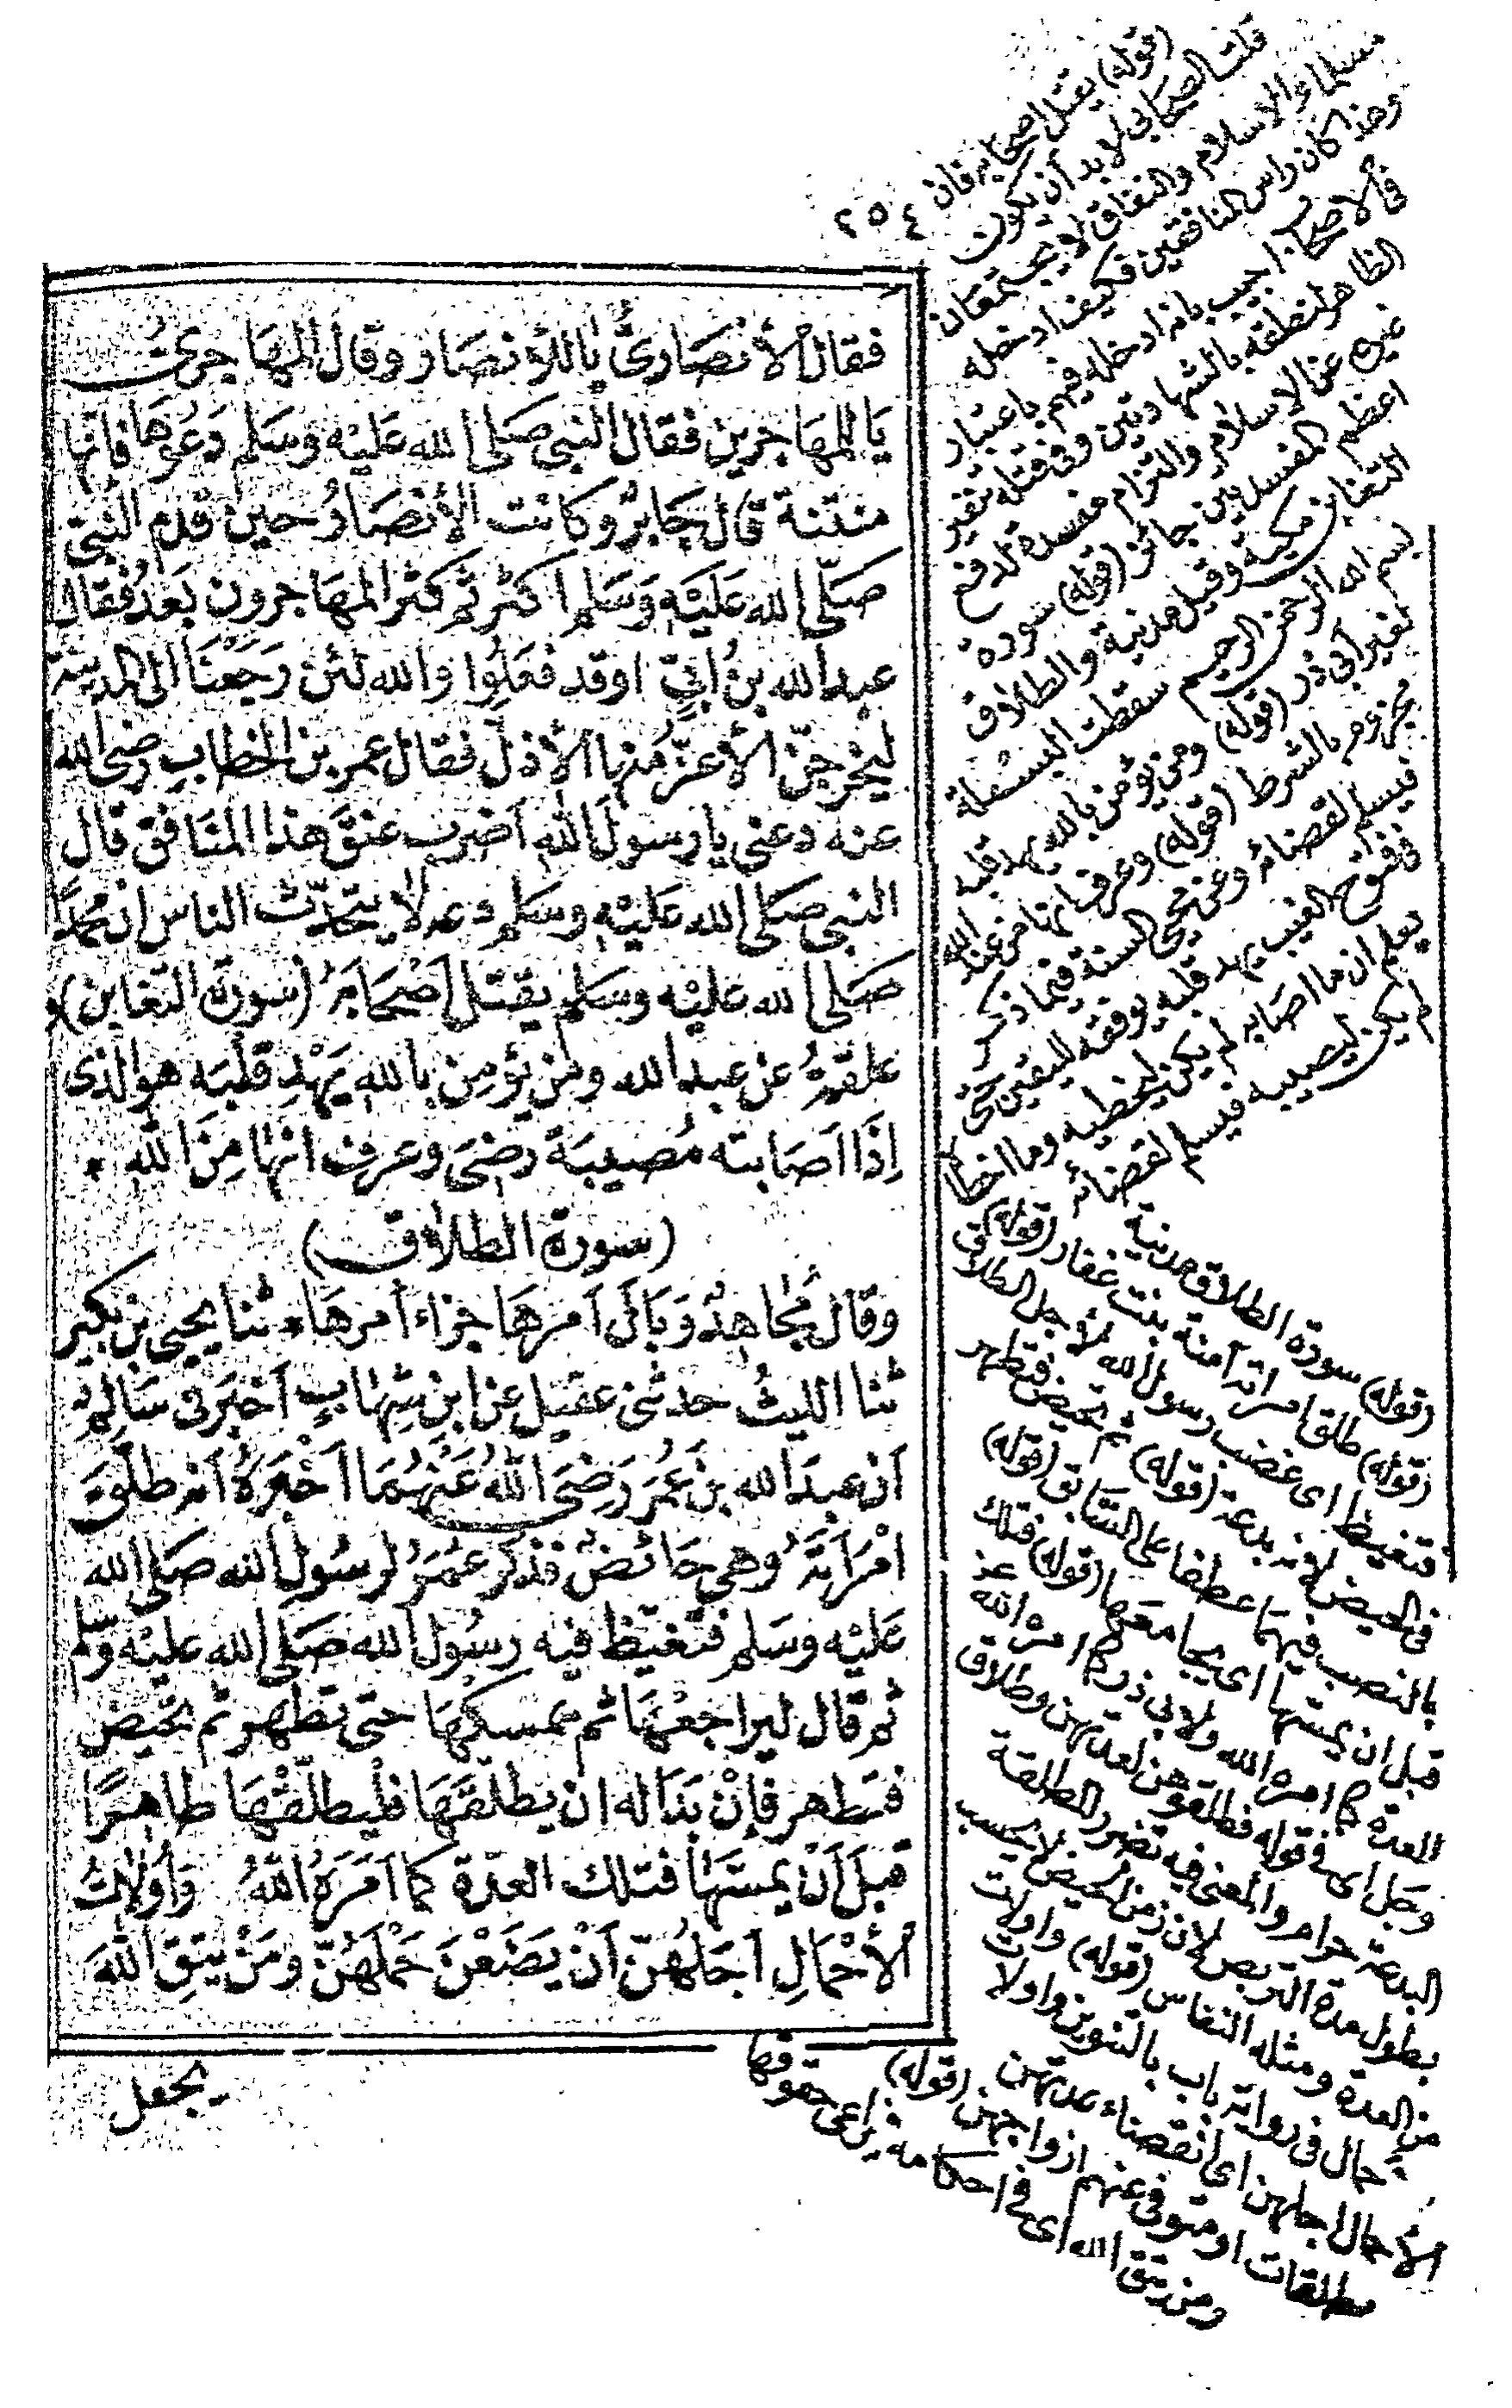 ٢٥٤
فقال الأنصارىُّ ياللأنصار وقال المهاجرىُّ
يا للمهاجرين فقال النبي صلى الله عليه وسلم دعوها فإنها
منتنة قال جابرٌ وكانت الأنصارُ حين قدم النبي
صلّى الله عليه وسلم اكثر ثم كثر المهاجرون بعدُ فقال
عبد الله بن أبيٍّ اوقد فعلوا والله لئن رجعْنا الى المدينة
ليخرجنّ الأعزّ منها الأذلّ فقال عمر بن الخطاب رضى الله
عنه دعنى يا رسول الله أضرب عنق هذا المنافق قال
النبي صلى الله عليه وسلم دعه لا يتحدّث الناس ان محمدًا
صلى الله عليه وسلم يقتل أصحابَهُ (سورة التغابن) و
علقمةُ عن عبد الله ومن يؤمن بالله يَهْدِ قلبَه هو الذى
إذا أصابته مُصيبَة رضىَ وعرف انها مِنَ الله *
(سورة الطلاق)
وقال مُجاهدٌ وَبَالَ اَمرهَا جزاء أمرهَا ثنا يحيى بن بكير
ثنا الليثُ حدثنى عقيل عن ابن شهابٍ أخبرنى سَالمٌ
أن عبدَ الله بن عُمَر رَضِىَ اللهُ عَنهُمَا أخْبَرَهُ أنه طلّقَ
امْرَأتَهُ وهى حَائضٌ فذكر عُمَرُ لرسُولِ الله صَلى الله
عَليْه وسَلم فتغيّظ فيه رسُول الله صَلى الله عليْه وسلم
ثم قال ليراجعْهَا ثم يمسكْهَا حتى تطهر ثم تحيض
فتطهر فإنْ بَدَا له ان يطلّقَهَا فليطلّقْهَا طاهرًا
قبلَ أنْ يمسّهَا فتلك العدّة كما أمَرَهُ اللهُ وَأُولَاتُ
الأحْمَالِ أجَلهُنّ أنْ يَضَعْنَ حَمْلَهُنّ ومَنْ يَتقِ اللهَ
يجعل
(قوله) يقتل اصحابه فان
قلت الصحابى لا بد أن يكون
مسلما والاسلام والنفاق لا يجتمعان
وهذا كان راس المنافقين فكيف ادخله
فى الاصحاب اجيب بانه ادخله فيهم باعتبار
الظاهر لنطقه بالشهادتين وفى قتله تنفير
غيره عن الاسلام والتزام مفسدة لدفع
اعظم المفسدتين جائز (قوله) سورة
التغابن مكية وقيل مدنية والطلاق
بسم الله الرحمن الرحيم سقطت البسملة
لغير أبى ذر (قوله) ومن يؤمن بالله يهد قلبه
مجزوم بالشرط (قوله) وعرف انها من عند الله
فيسلم لقضائه وعن محيى السنة فيما ذكر
فى فتوح الغيب يهد قلبه يوفقه لليقين حتى
يعلم ان ما اصابه لم يكن ليخطيه وما اخطأه
لم يكن ليصيبه فيسلم لقضائه
(قوله) سورة الطلاق مدنية
(قوله) طلق امراته آمنة بنت غفار (قوله)
فتغيظ اى غضب رسول الله لأجل الطلاق
فى الحيض لانه بدعة (قوله) ثم تحيض فتطهر
بالنصب فيهما عطفا على السابق (قوله)
قبل ان يمسّها اى يجامعها (قوله) فتلك
العدة كما امره الله ولابى ذر كما امر الله عز
وجل اى فى قوله فطلقوهن لعدتهن وطلاق
البدعة حرام والمعنى فيه تضرر المطلقة
بطول مدة التربص لان زمن الحيض لا يحسب
من العدة ومثله النفاس (قوله) واولات
حمال فى رواية باب بالتنوين واولات
الأحمال اجلهن اى انقضاء عدتهن
مطلقات او متوفى عنهم ازواجهن (قوله)
ومن يتق الله اى فى احكامه فيراعى حقوقها